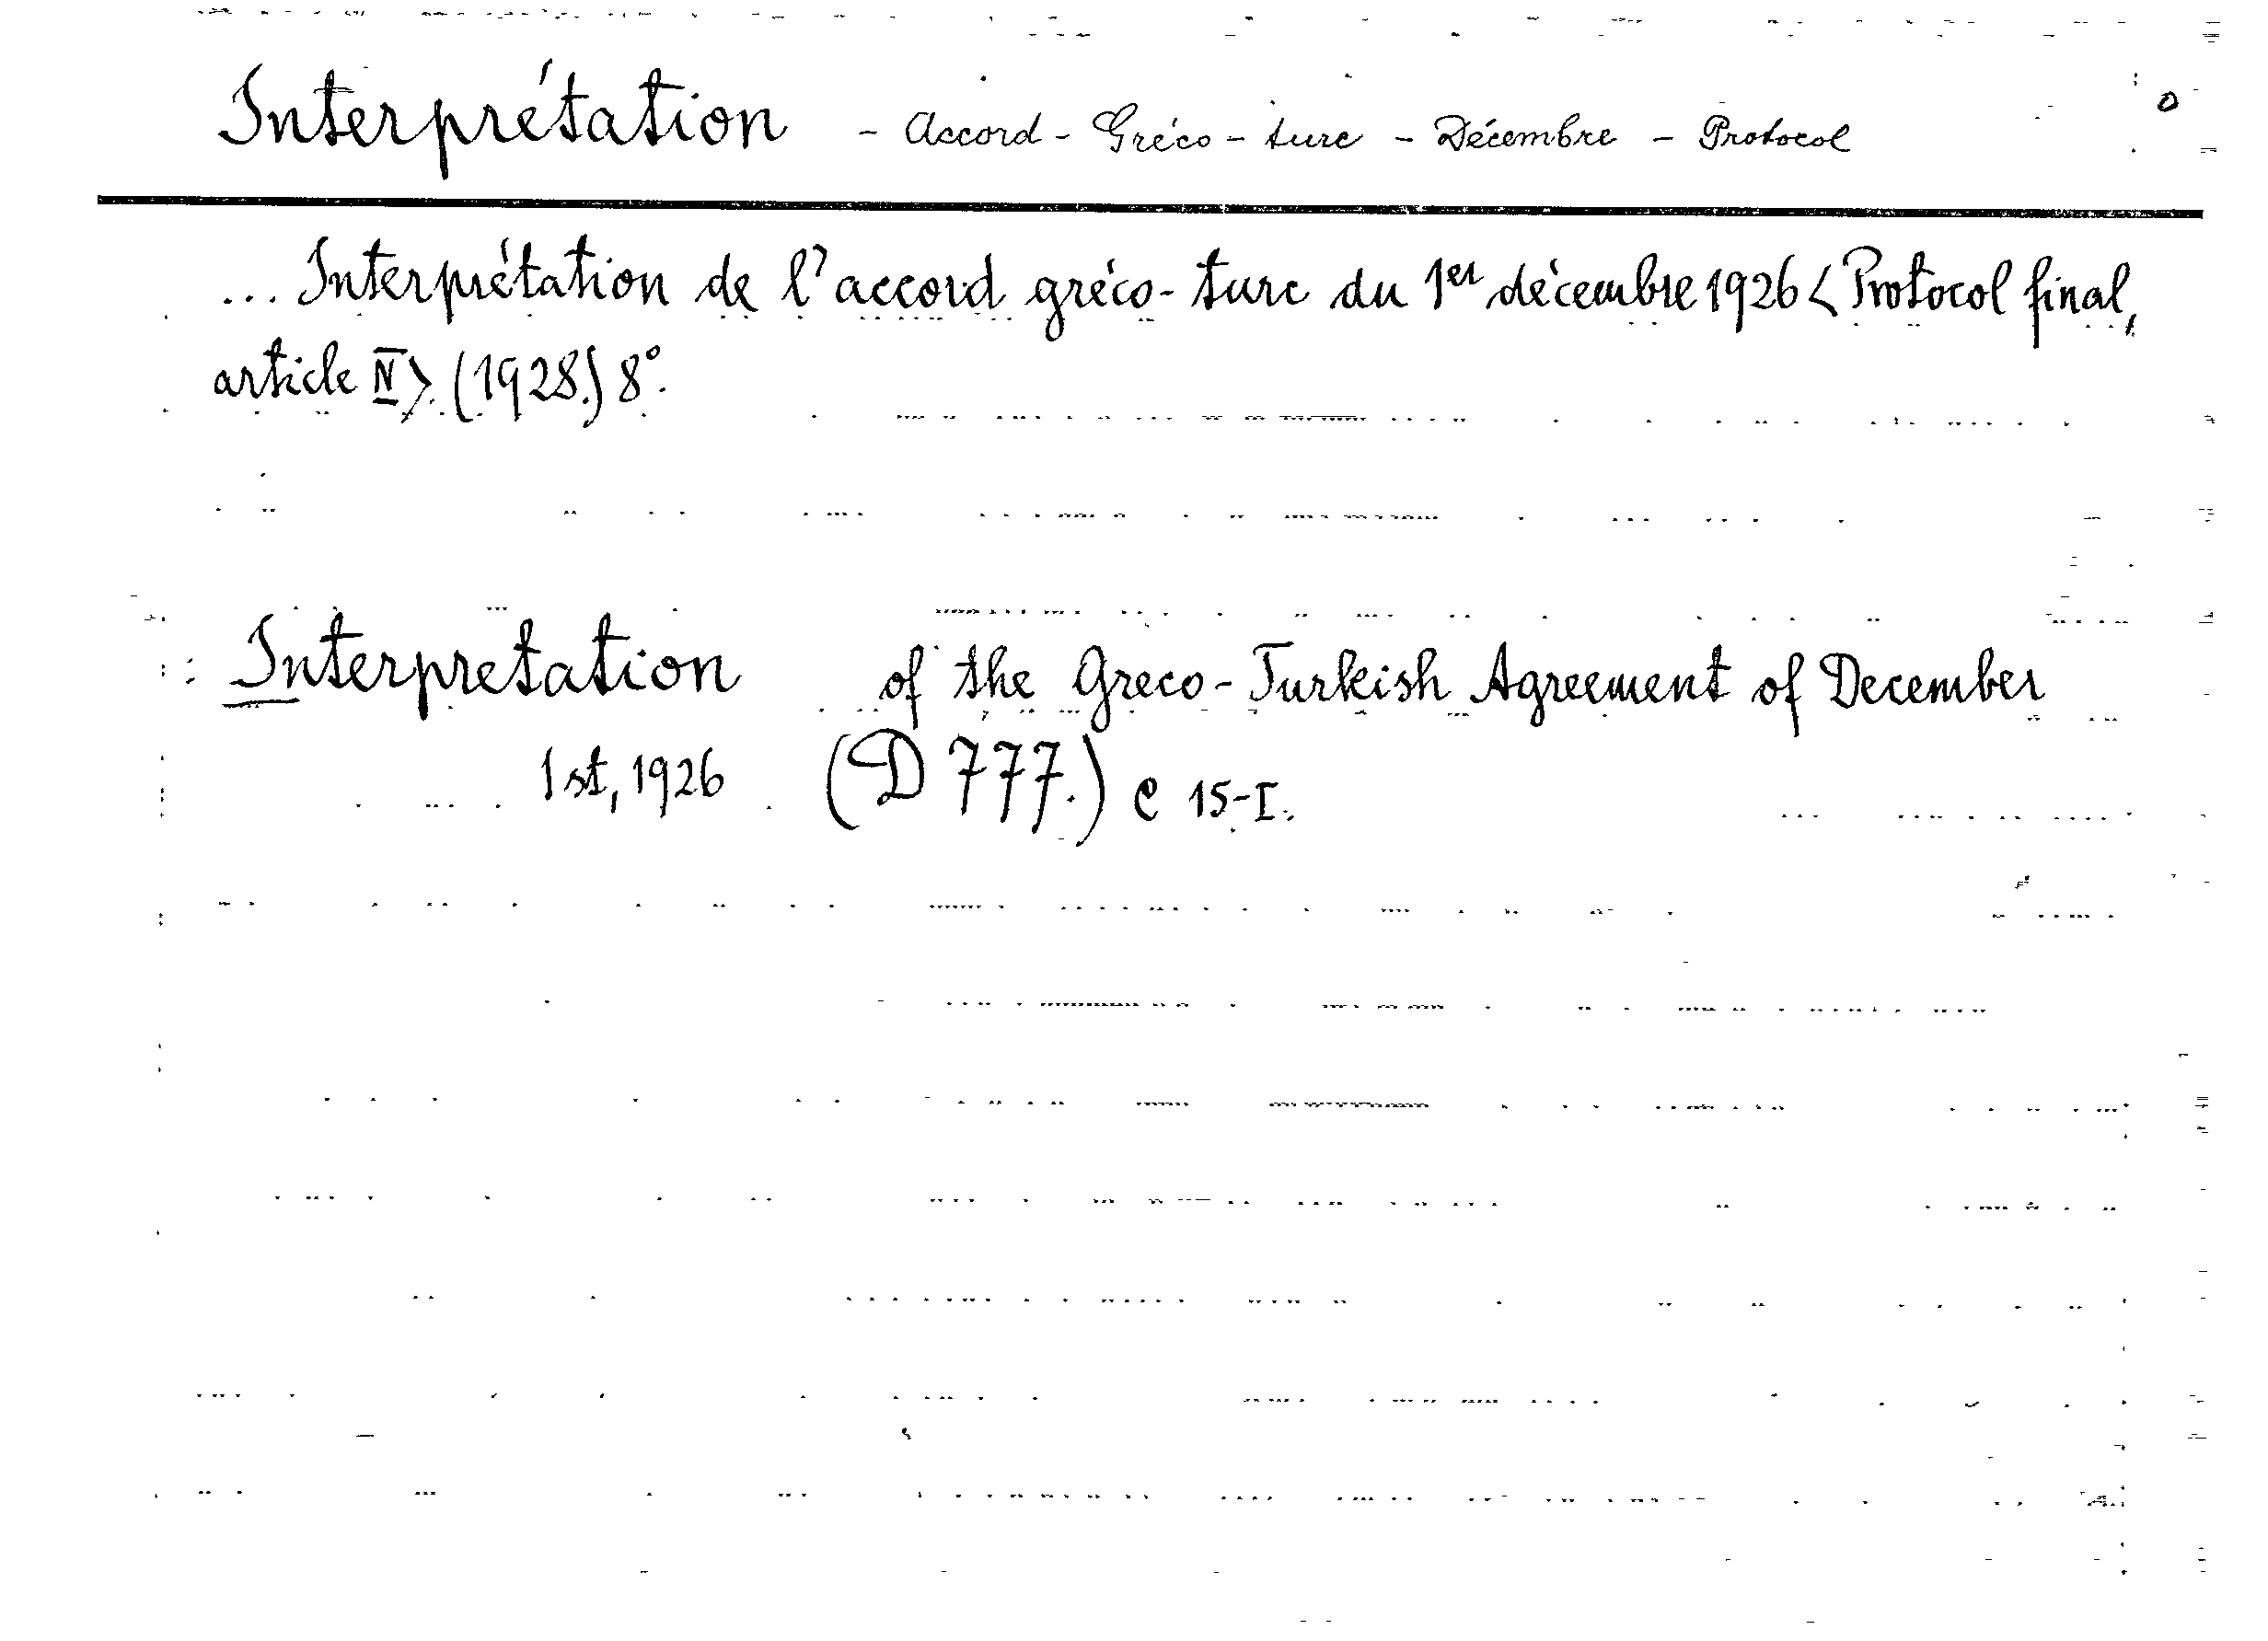 Interprétation - Accord - Gréco - turc - Décembre - Protocol
... Interprétation de l'accord gréco-turc du 1er décembre 1926 < Protocol final,
article IV>. (1928.) 8°.
Interpretation of the Greco-Turkish Agreement of December
1st, 1926 (D 777.) e 15-I.